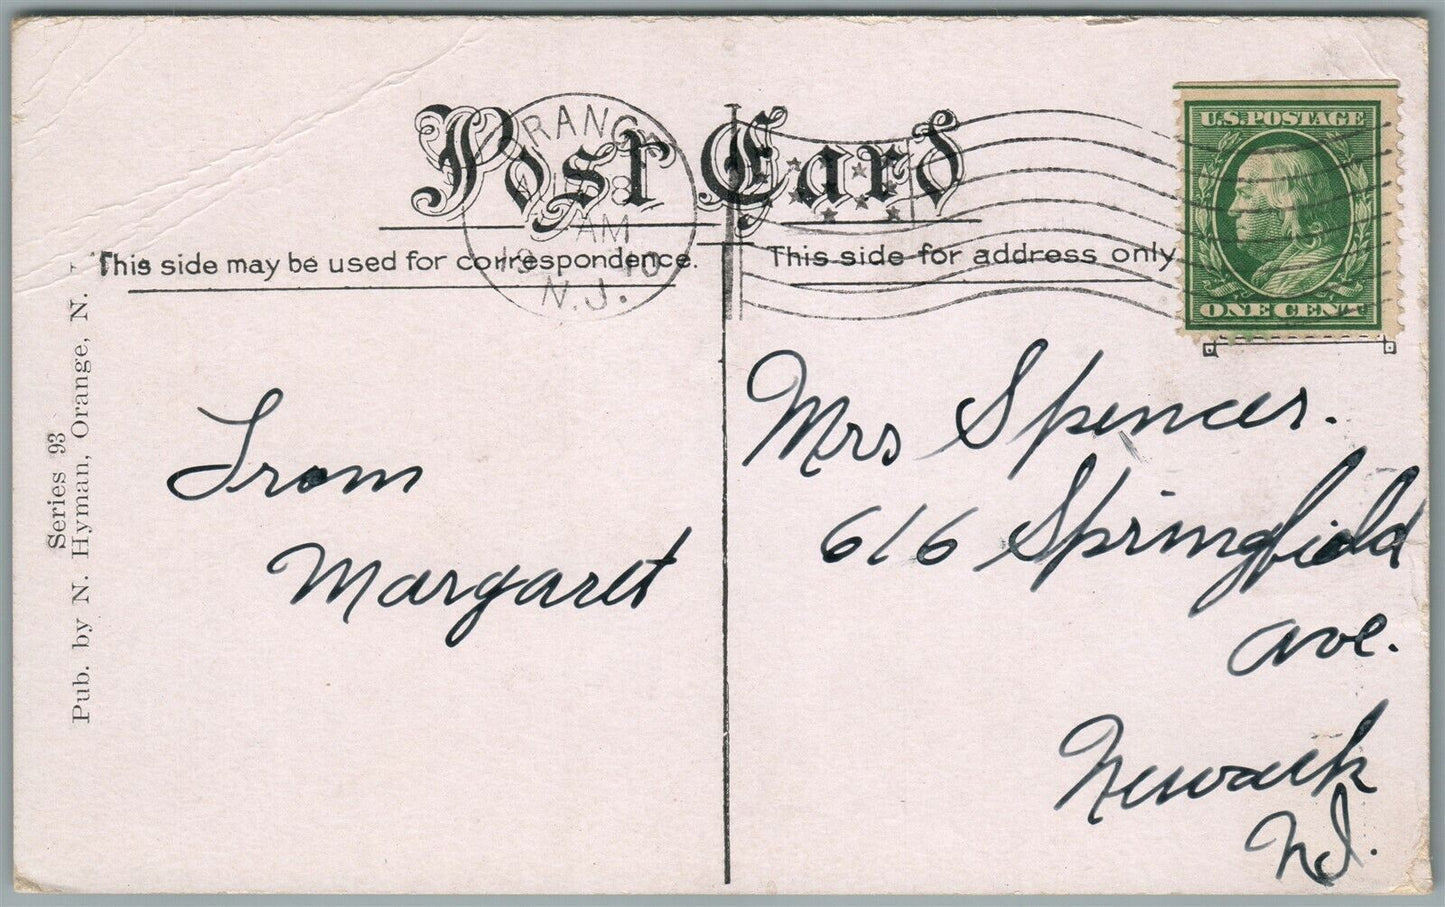 Post Card
This side may be used for correspondence.
This side for address only
U.S.POSTAGE
ONE CENT
ORANGE
8
AM
19 10
N.J.
Series 93
Pub. by N. Hyman, Orange, N.
From
Margaret
Mrs Spencer.
616 Springfield
Ave.
Newark
NJ.